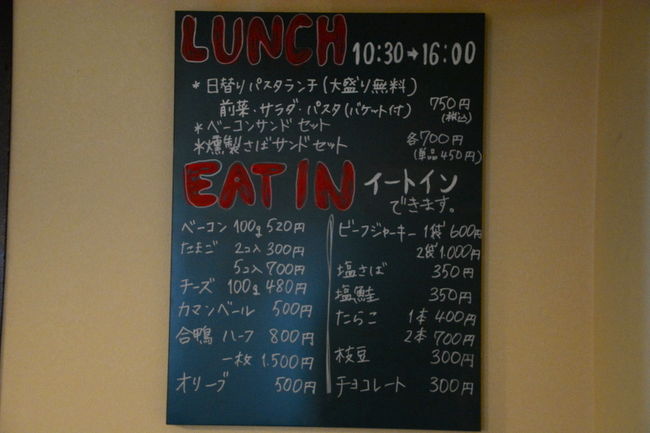 LUNCH 10:30→16:00
*日替りパスタランチ(大盛り無料)
前菜・サラダ・パスタ(バケット付) 750円
(税込)
*ベーコンサンドセット
各700円
*燻製さばサンドセット
(単品450円)
EAT IN イートイン
できます。
ベーコン 100g 520円
たまご 2コ入 300円
5コ入 700円
チーズ 100g 480円
カマンベール 500円
合鴨 ハーフ 800円
一枚 1.500円
オリーブ 500円
ビーフジャーキー 1袋 600円
2袋 1.000円
塩さば 350円
塩鮭 350円
たらこ 1本 400円
2本 700円
枝豆 300円
チョコレート 300円